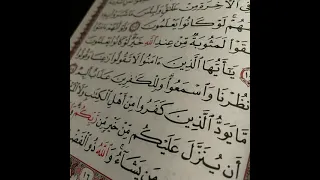 فِي الْآخِرَةِ مِنْ
هُمْ لَوْ كَانُوا يَعْلَمُونَ
تَّقَوْا لَمَثُوبَةٌ مِّنْ عِندِ اللَّهِ خَيْرٌ لَّوْ كَانُوا يَعْلَمُونَ
يَٰٓأَيُّهَا الَّذِينَ ءَامَنُوا لَا تَقُولُوا
نظُرْنَا وَاسْمَعُوا وَلِلْكَٰفِرِينَ عَذَابٌ
مَّا يَوَدُّ الَّذِينَ كَفَرُوا مِنْ أَهْلِ الْكِتَٰبِ وَلَا
أَن يُنَزَّلَ عَلَيْكُم مِّنْ خَيْرٍ مِّن رَّبِّكُمْ
مَن يَشَآءُ وَاللَّهُ ذُو الْفَضْلِ